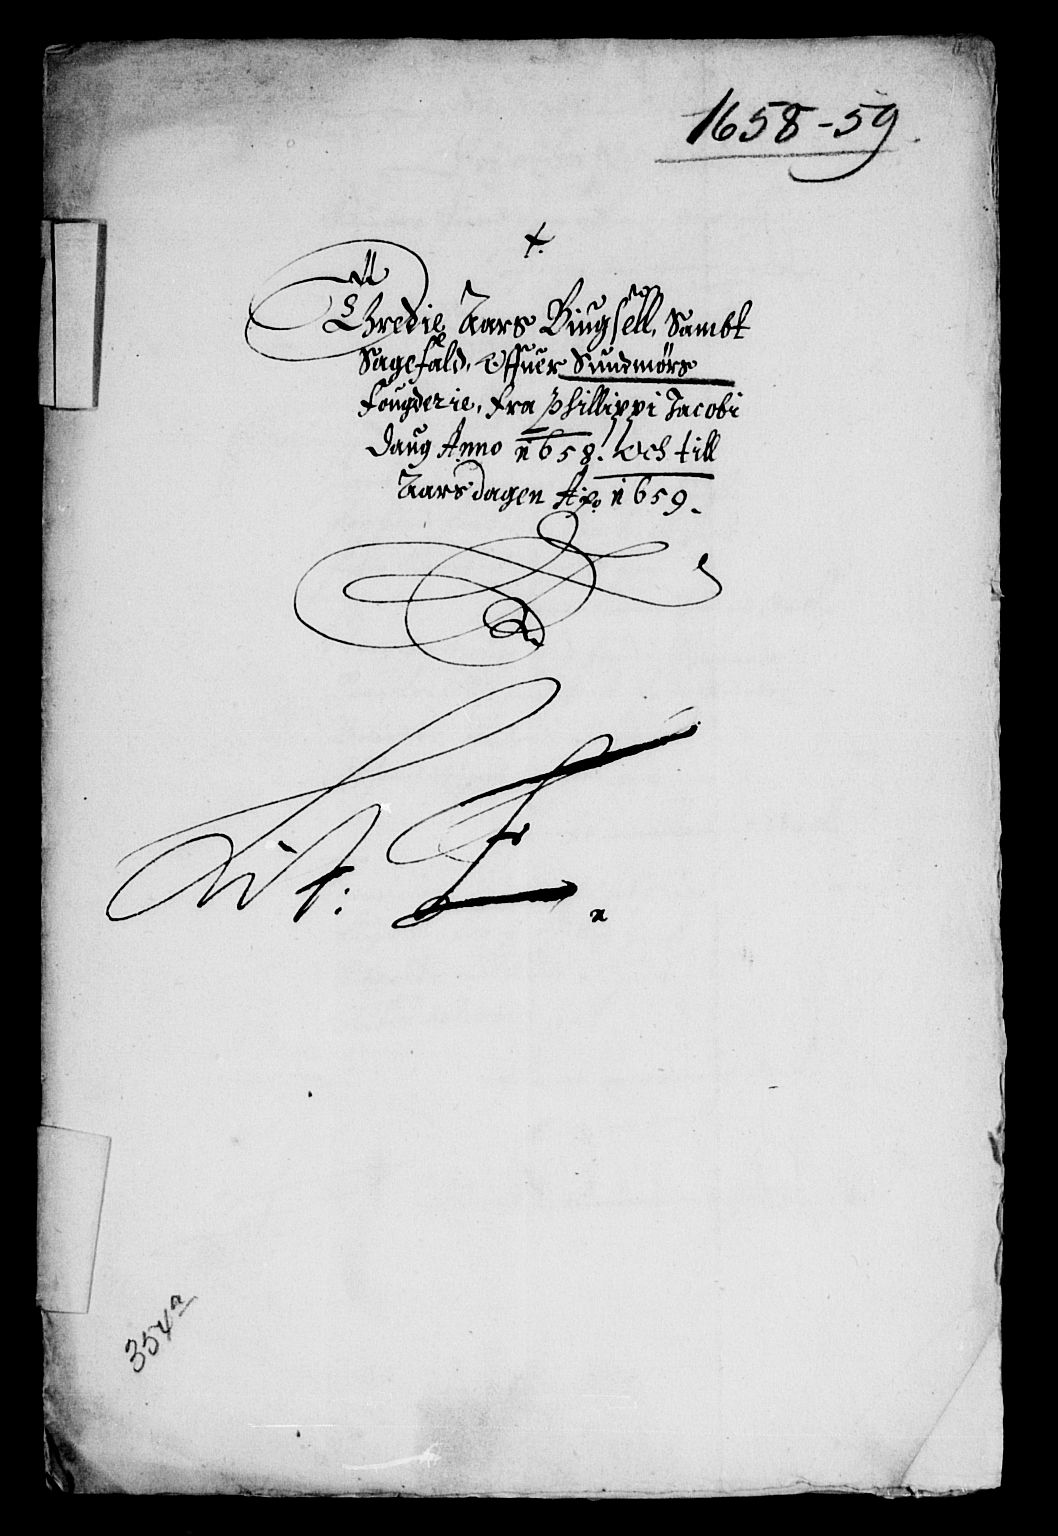 1658-59
Et
Thredie Aars Bingsell, Sambt
Sagefald, Offuer Sundmörs
Fougderie, fra Phillippi Jacobi
daug Anno 1658. Och till
Aarsdagen Ao 1659.
Lit: E.
354a